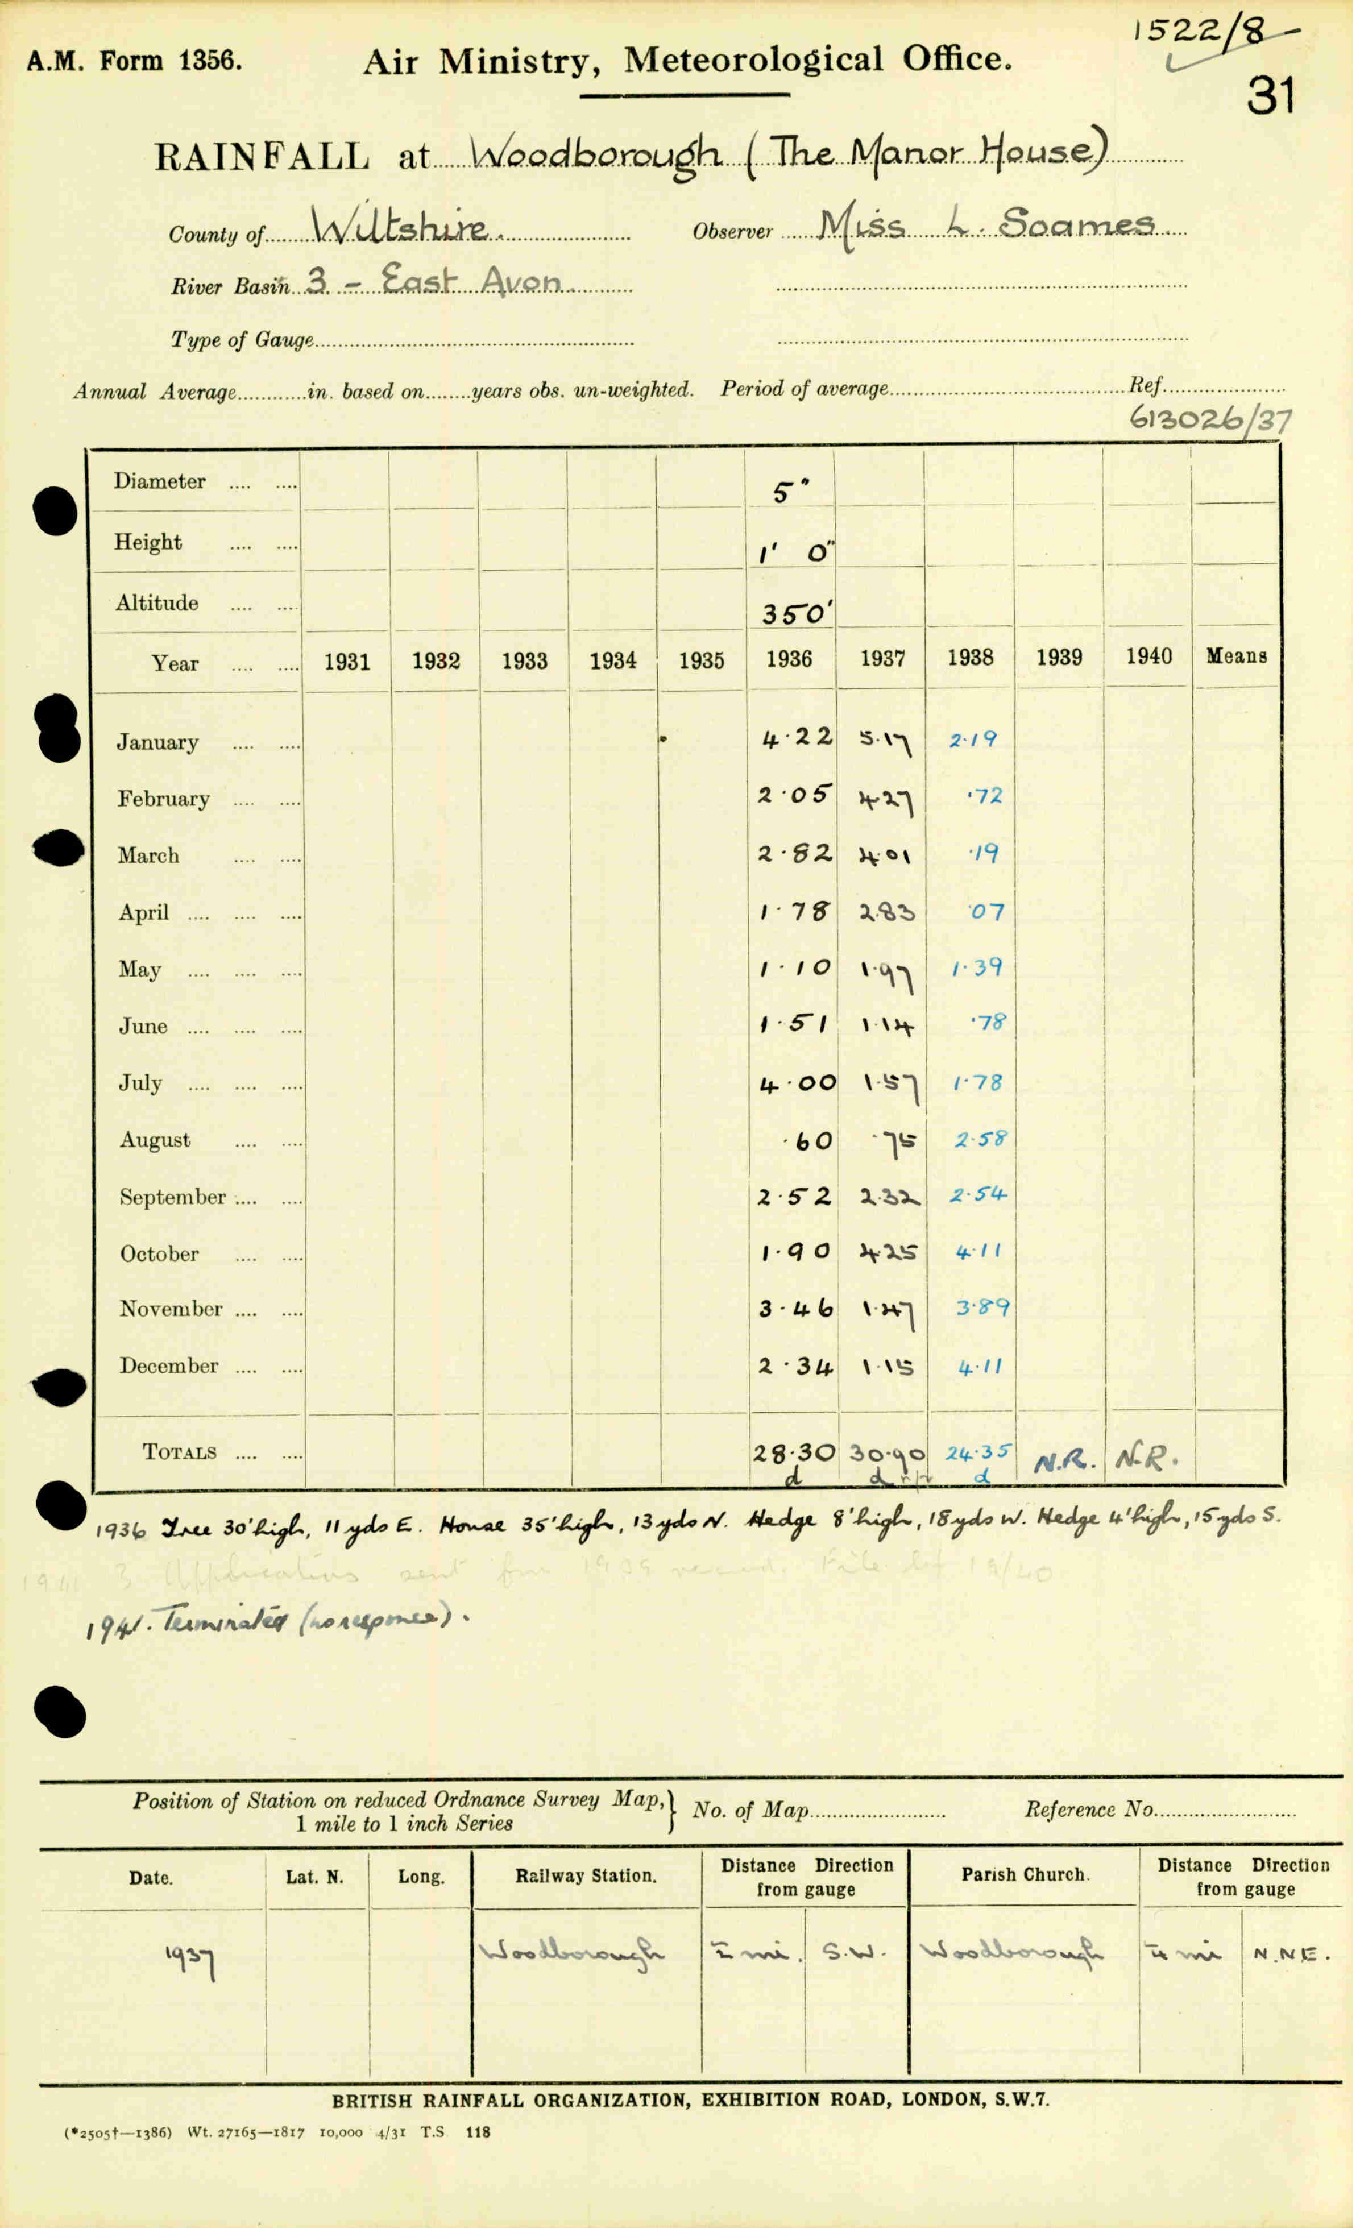 1522/8
A.M. Form 1356. Air Ministry, Meteorological Office.
31
RAINFALL at Woodborough (The Manor House)
County of Wiltshire. Observer Miss L. Soames
River Basin 3 - East Avon
Type of Gauge
Annual Average in. based on years obs. un-weighted. Period of average Ref.
613026/37
Diameter 5"
Height 1' 0"
Altitude 350'
Year 1931 1932 1933 1934 1935 1936 1937 1938 1939 1940 Means
January 4.22 5.17 2.19
February 2.05 4.27 .72
March 2.82 4.01 .19
April 1.78 2.83 .07
May 1.10 1.97 1.39
June 1.51 1.14 .78
July 4.00 1.57 1.78
August .60 .75 2.58
September 2.52 2.32 2.54
October 1.90 4.25 4.11
November 3.46 1.47 3.89
December 2.34 1.15 4.11
TOTALS 28.30 30.90 24.35 N.R. N.R.
d d d
1936 Tree 30' high, 11 yds E. House 35' high, 13 yds N. Hedge 8' high, 18 yds W. Hedge 4' high, 15 yds S.
3 Applications sent for 1939 record. File
1941. Terminated (no response).
Position of Station on reduced Ordnance Survey Map, } No. of Map Reference No.
1 mile to 1 inch Series
Date. Lat. N. Long. Railway Station. Distance Direction from gauge Parish Church. Distance Direction from gauge
1937 Woodborough ½ mi. S.W. Woodborough ¼ mi N.N.E.
BRITISH RAINFALL ORGANIZATION, EXHIBITION ROAD, LONDON, S.W.7.
(*2505†—1386) Wt. 27165—1817 10,000 4/31 T.S. 118